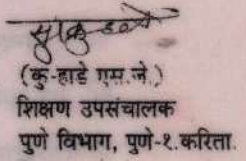 (कु-हाडे एस.जे.)
शिक्षण उपसंचालक
पुणे विभाग, पुणे-१.करिता.